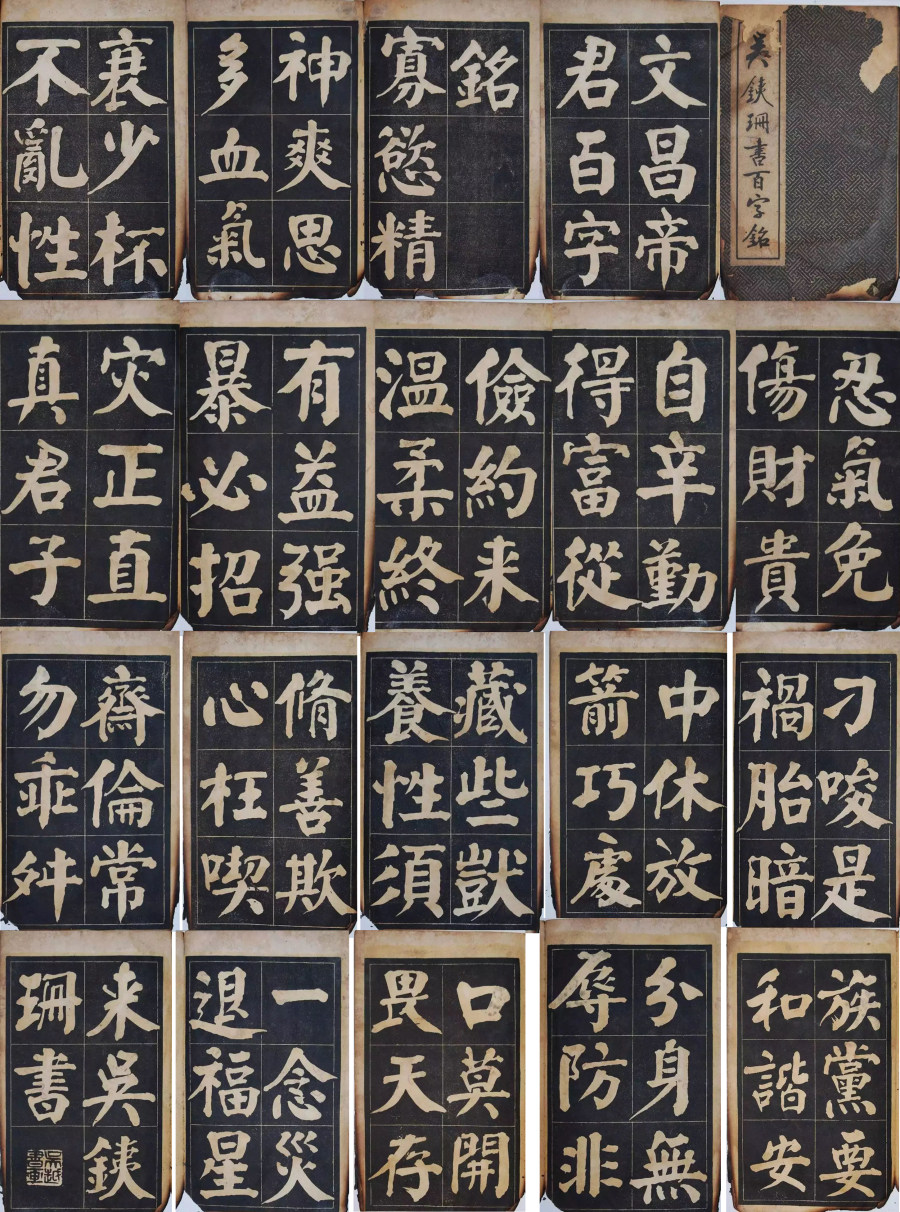 吳鋏珊書百字銘
文昌帝
君百字
銘
寡慾精
神爽思
多血氣
衰少杯
不亂性
忍氣免
傷財貴
自辛勤
得富從
儉約来
温柔終
有益强
暴必招
灾正直
真君子
刁唆是
禍胎暗
中休放
箭巧處
藏些獃
養性須
脩善欺
心枉喫
齋倫常
勿乖舛
族黨要
和諧安
分身無
辱防非
口莫開
畏天存
一念災
退福星
来吳鋏
珊書